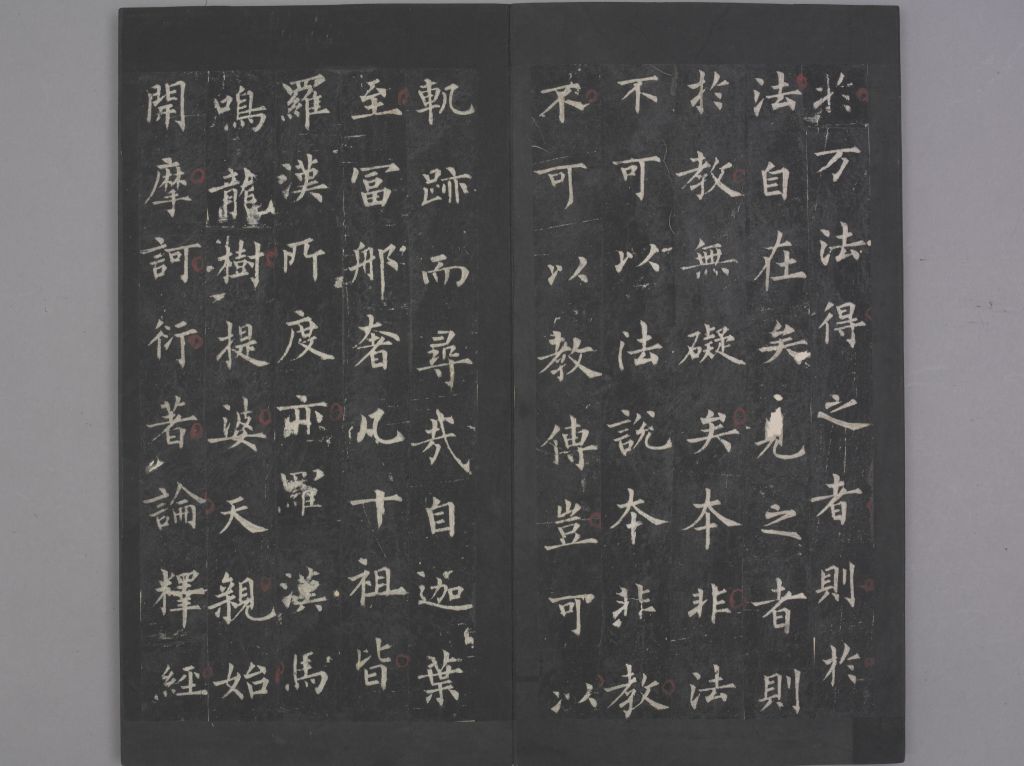 於万法得之者則於
法自在矣見之者則
於教無礙矣本非法
不可以法説本非教
不可以教傳豈可以
軌跡而尋哉自迦葉
至冨那奢凡十祖皆
羅漢所度亦羅漢馬
鳴龍樹提婆天親始
開摩訶衍著論釋經